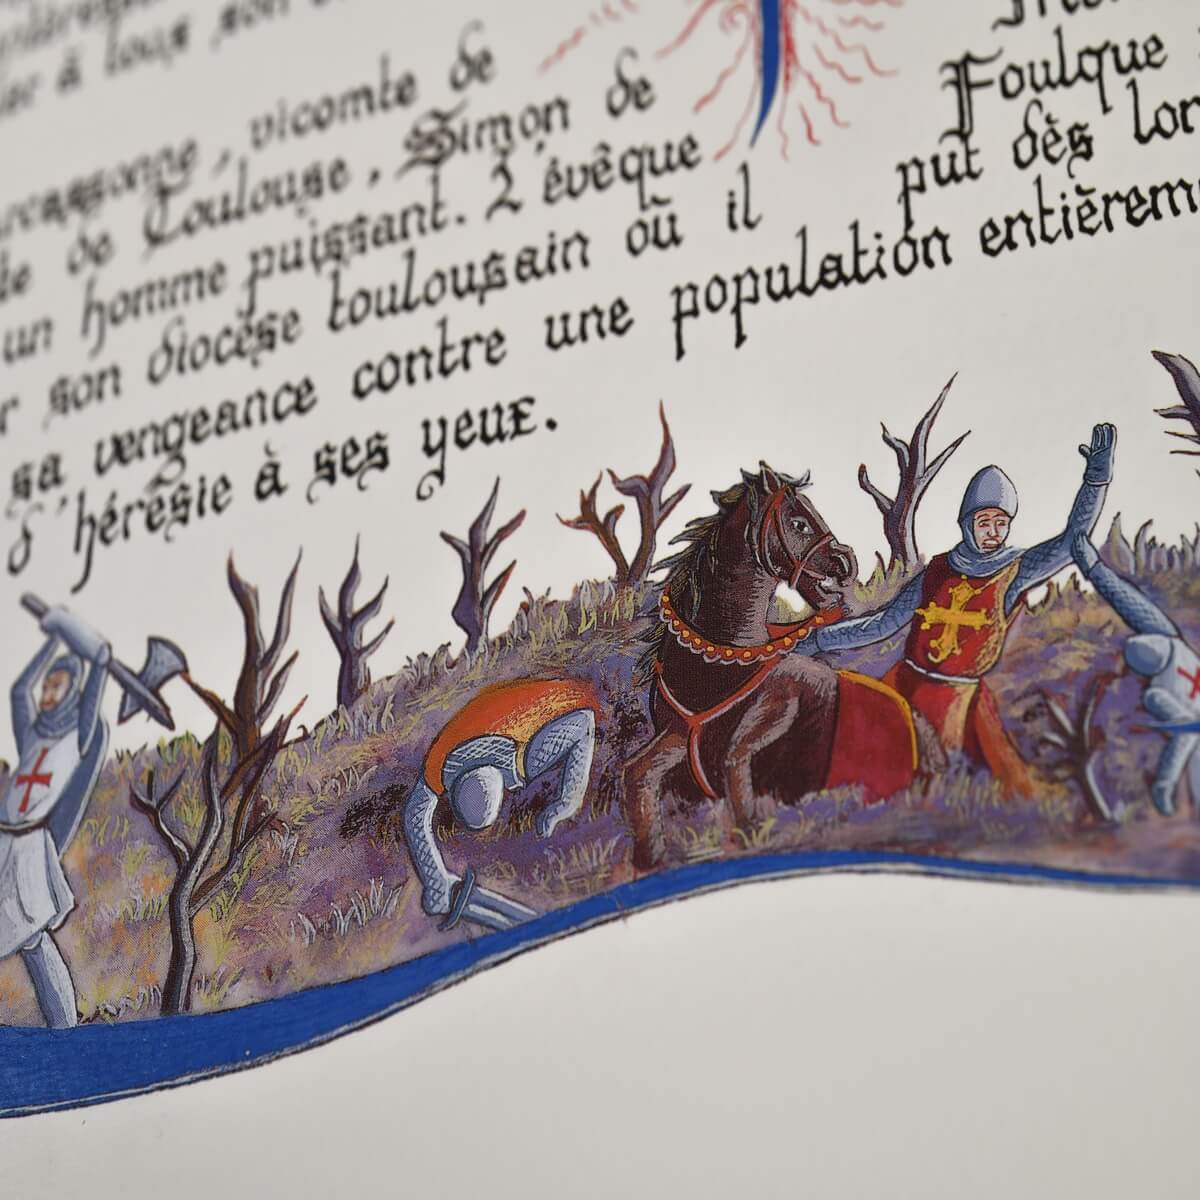 à tous son
, vicomte de
de Toulouse, Simon de
un homme puissant. L'évêque
son diocèse toulousain où il
sa vengeance contre une population entièrem
d'hérésie à ses yeux.
Foulque
put dès lor